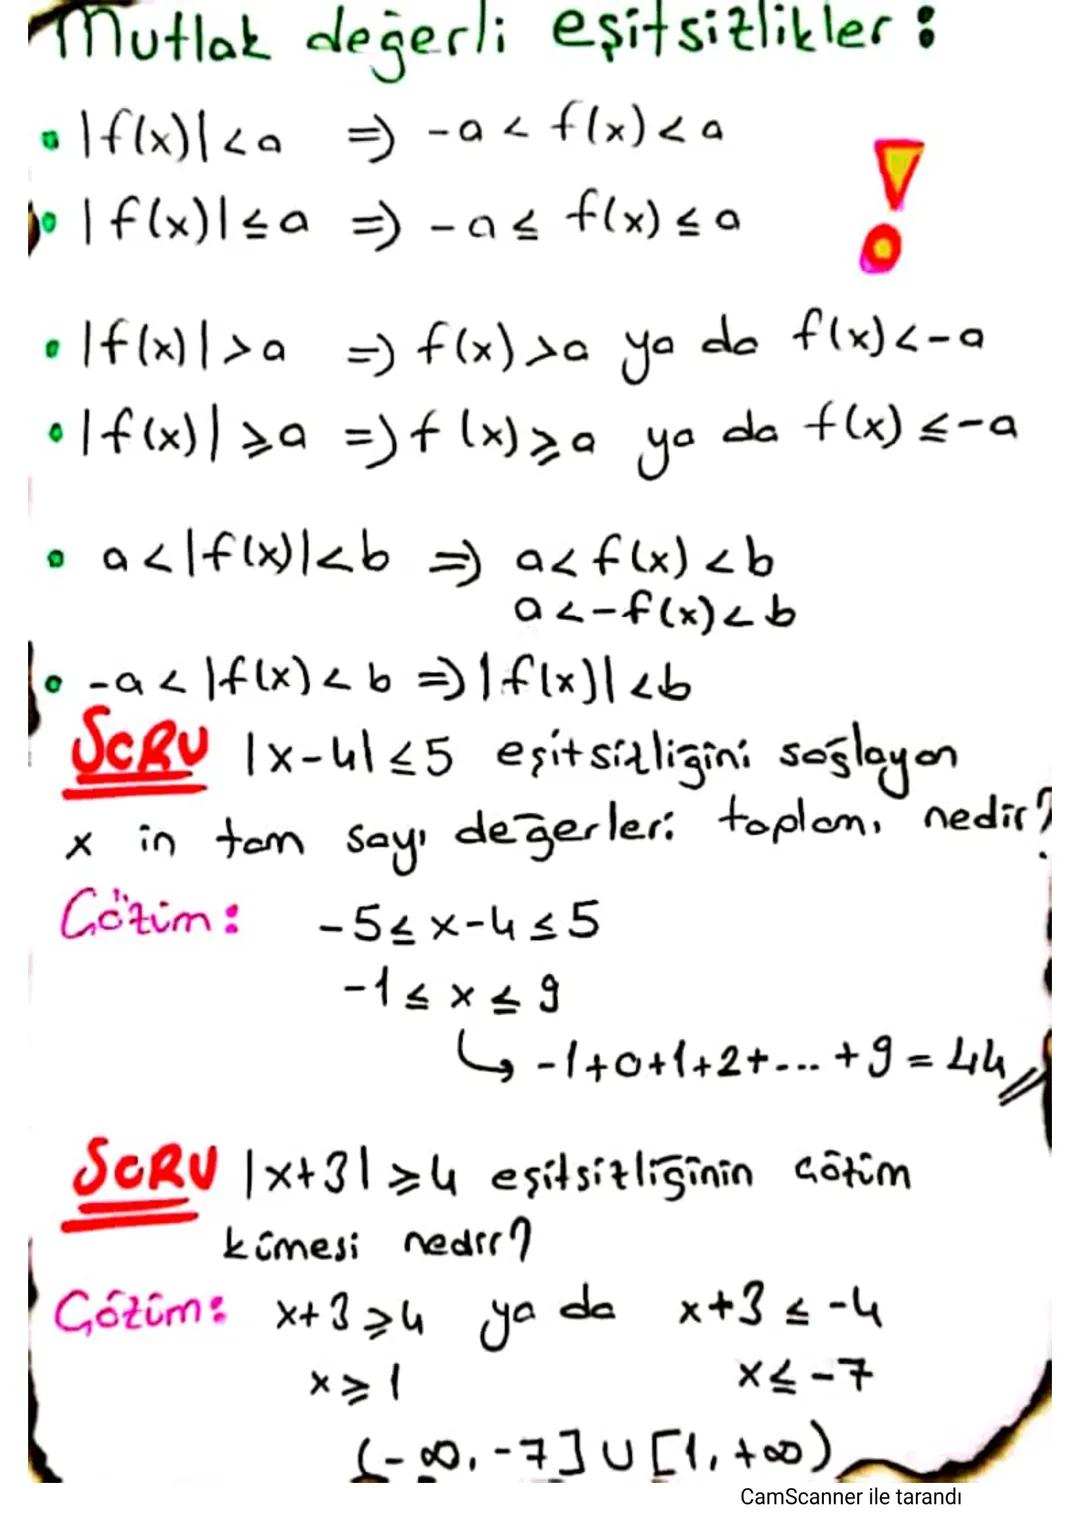 Mutlak değerli eşitsizlikler:
• |f(x)|<a ⇒ -a < f(x)<a
• |f(x)|≤a ⇒ -a ≤ f(x) ≤ a
• |f(x)|>a ⇒ f(x)>a ya da f(x)<-a
• |f(x)|⩾a ⇒ f(x)⩾a ya da f(x) ≤-a
• a<|f(x)|<b ⇒ a< f(x) <b
a <-f(x)< b
• -a < |f(x) < b ⇒ |f(x)| <b
SORU |x-4| ≤5 eşitsizliğini sağlayan
x in tam sayı değerleri toplamı nedir?
Çözüm: -5≤ x-4 ≤5
-1≤ x ≤ 9
↳ -1+0+1+2+... +9 = 44
SORU |x+3|⩾4 eşitsizliğinin çözüm
kümesi nedir?
Çözüm: x+3⩾4 ya da x+3 ≤ -4
x⩾1 x≤ -7
(-∞, -7] ∪ [1, +∞)
CamScanner ile tarandı